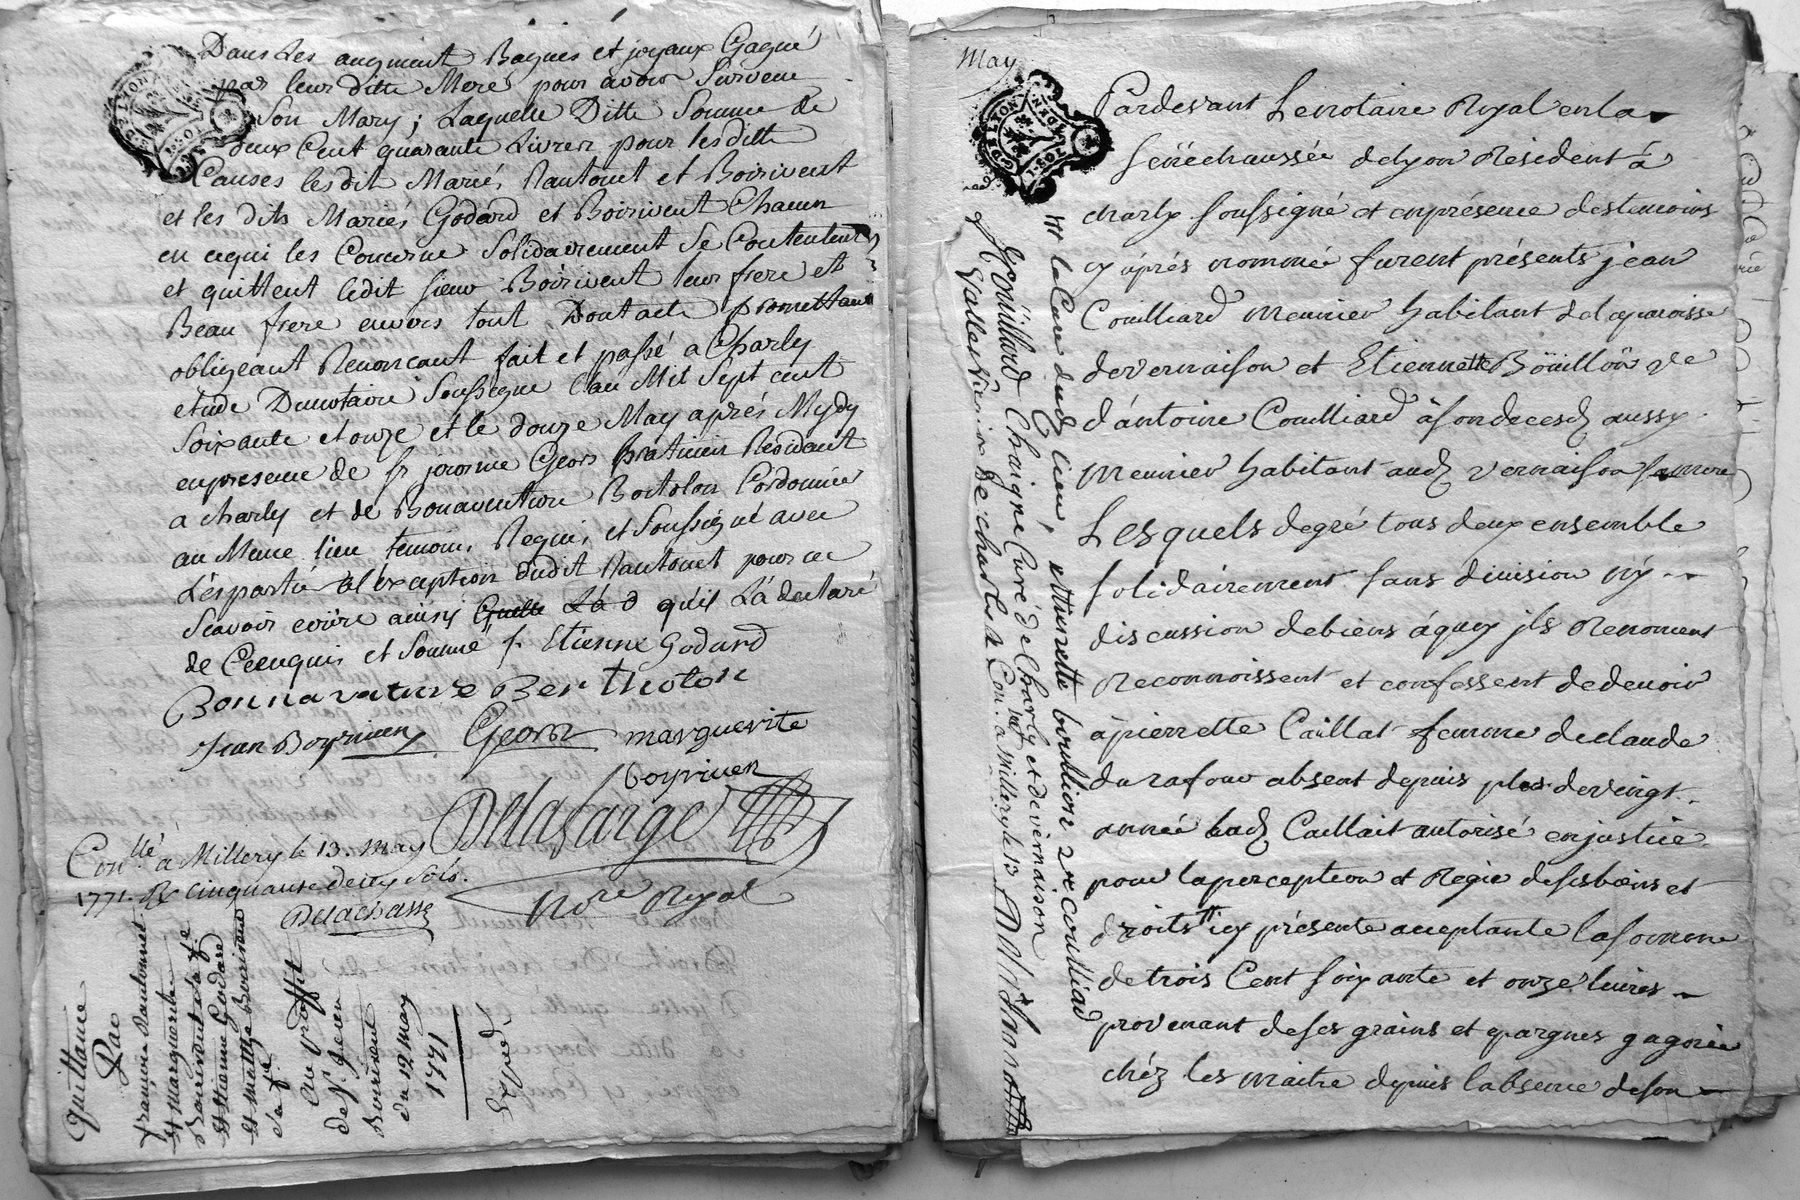 Dans Les augment Bagues et joyaux Gagné
par leur ditte Mere pour avoir Survecu
Son Mary; Laquelle Ditte Somme de
deux Cent quarante Livres pour lesditte
Causes lesdit Mariés Nantouet et Boirivent
et les dits Mariés Godard et Boirivent Chacun
en cequi les Concerne Solidairement Se Contentent
et quittent ledit sieur Boirivent leur frere et
Beau frere envers tout Dont acte promettant
obligeant Renoncant fait et passé a Charly
etude Dunotaire Soussigne L'an Mil Sept cent
Soixante et onze et le douze May aprés Mydy
enpresence de sr jerosme Geors praticien Residant
a charly et de Bonaventure Bertolon Cordonnier
au Meme lieu temoins Requis et Soussigné avec
Lespartie a l'exception dudit Nantouet pour ne
Scavoir ecrire ainsy qu'il La declaré
de Ceenquis et Sommé /. Etienne Godard
Bonnavanture Bertholon
Jean Boyriven Geors marguerite
boyriven
Delafarge
Nore Royal
Conllé a Millery le 13. may
1771. Rx cinquante deux sols.
Delachasse
quittance
Par
françois Nantouet
et Marguerite
Boirivent sa fe
et Etienne Godard
et Boirivent
sa fe
Au Proffit
de Sr. Jean
Boirivent
du 12 may
1771
Expéd.
May
G. DE LYON
Pardevant Lenotaire Royal enla
senéchaussée delyon Résident à
charly soussigné et enprésence destemoins
cy áprés nommé furent présents jean
Couilliard Meunier habitant delaparoisse
devernaison et Etiennette Boüillon ve
d'ántoine Couilliard àsondecesd aussy
Meunier habitant aud vernaison samere
Lesquels degré tous deux ensemble
solidairement sans division ny
discussion debiens áquoy jls Renoncent
Reconnoissent et confessent dedevoir
ápierrette Caillat femme declaude
durafour absent depuis plus devingt
année lad Caillait autorisé enjustice
pour laperception et Regie desesbiens et
droits icy présente acceptante lasomme
detrois Cent soixante et onze livres
provenant deses grains et epargnes gagnée
chéz les maitre depuis labsence deson
mr le Cure dud lieu, ettiennette boullion ve couilliad
J. Couilliard Chaigne Curé de Charly et de vernaison